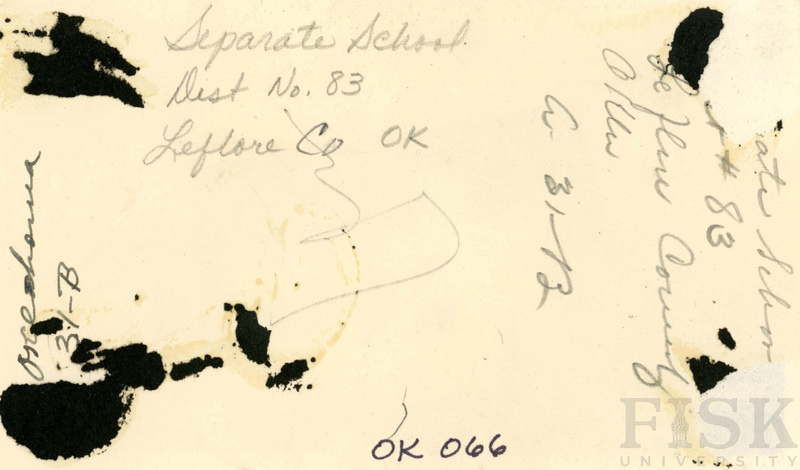 Separate School
Dist No. 83
Leflore Co OK
ate Schoo
t # 83
Leflore County
Okla
31-B
Oklahoma
31-B
OK 066
FISK
UNIVERSITY